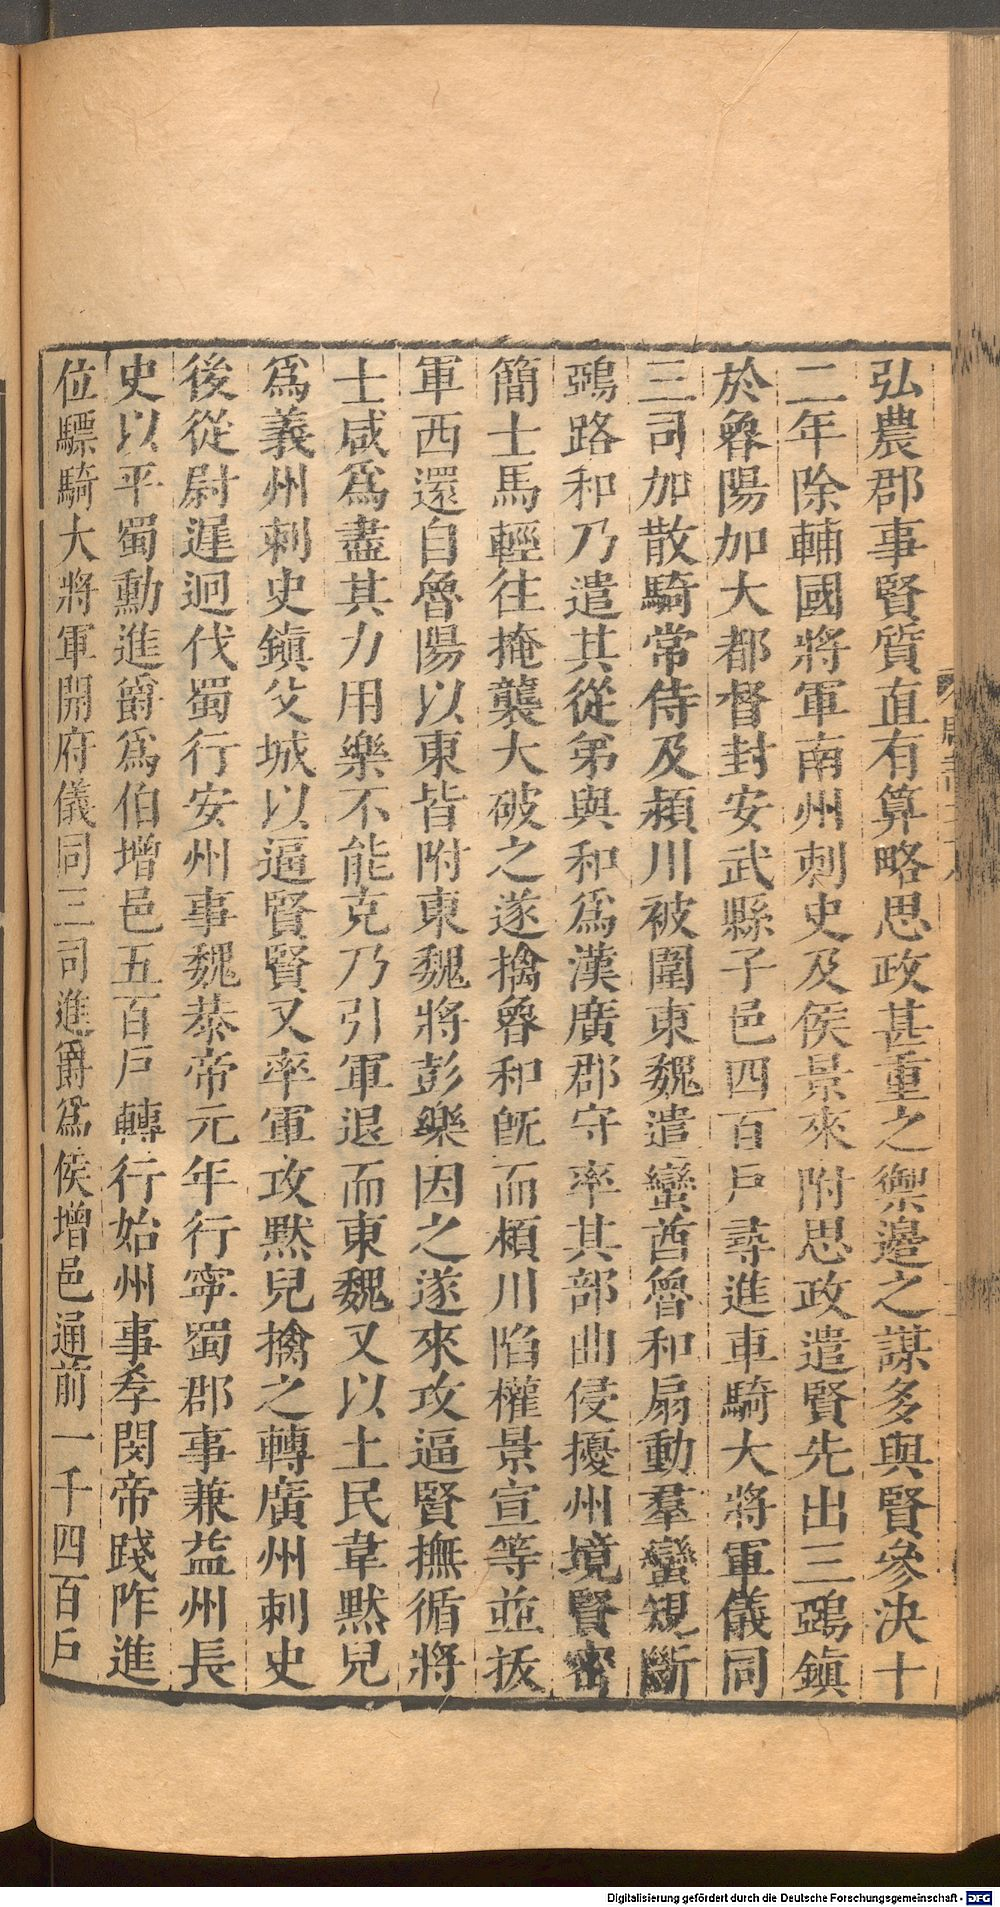 弘農郡事賢質直有算略思政甚重之禦邊之謀多與賢參決十
二年除輔國將軍南州刺史及侯景來附思政遣賢先出三鵶鎮
於魯陽加大都督封安武縣子邑四百戶尋進車騎大將軍儀同
三司加散騎常侍及潁川被圍東魏遣蠻酋魯和扇動羣蠻規斷
鵶路和乃遣其從弟與和為漢廣郡守率其部曲侵擾州境賢密
簡士馬輕往掩襲大破之遂擒魯和旣而潁川陷權景宣等並拔
軍西還自魯陽以東皆附東魏將彭樂因之遂來攻逼賢撫循將
士咸為盡其力用樂不能克乃引軍退而東魏又以土民韋默兒
為義州刺史鎮父城以逼賢賢又率軍攻默兒擒之轉廣州刺史
後從尉遲迥伐蜀行安州事魏恭帝元年行寧蜀郡事兼益州長
史以平蜀勳進爵為伯增邑五百戶轉行始州事孝閔帝踐阼進
位驃騎大將軍開府儀同三司進爵為侯增邑通前一千四百戶
Digitalisierung gefördert durch die Deutsche Forschungsgemeinschaft - DFG